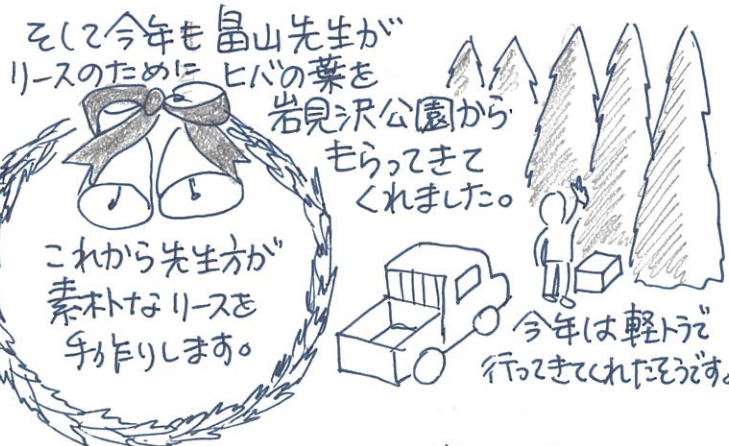 そして今年も畠山先生が
リースのために ヒバの葉を
岩見沢公園から
もらってきて
くれました。
これから先生方が
素朴なリースを
手作りします。
今年は軽トラで
行ってきてくれたそうです。